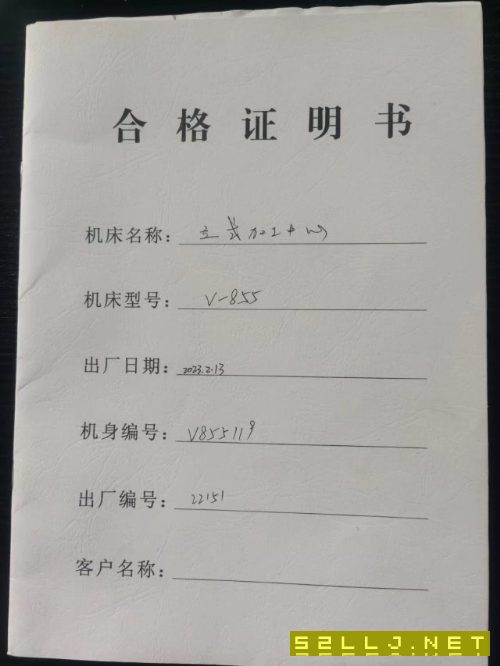 合格证明书
机床名称：立式加工中心
机床型号：V-855
出厂日期：2023.2.13
机身编号：V855119
出厂编号：22151
客户名称：
52LLJ.NET